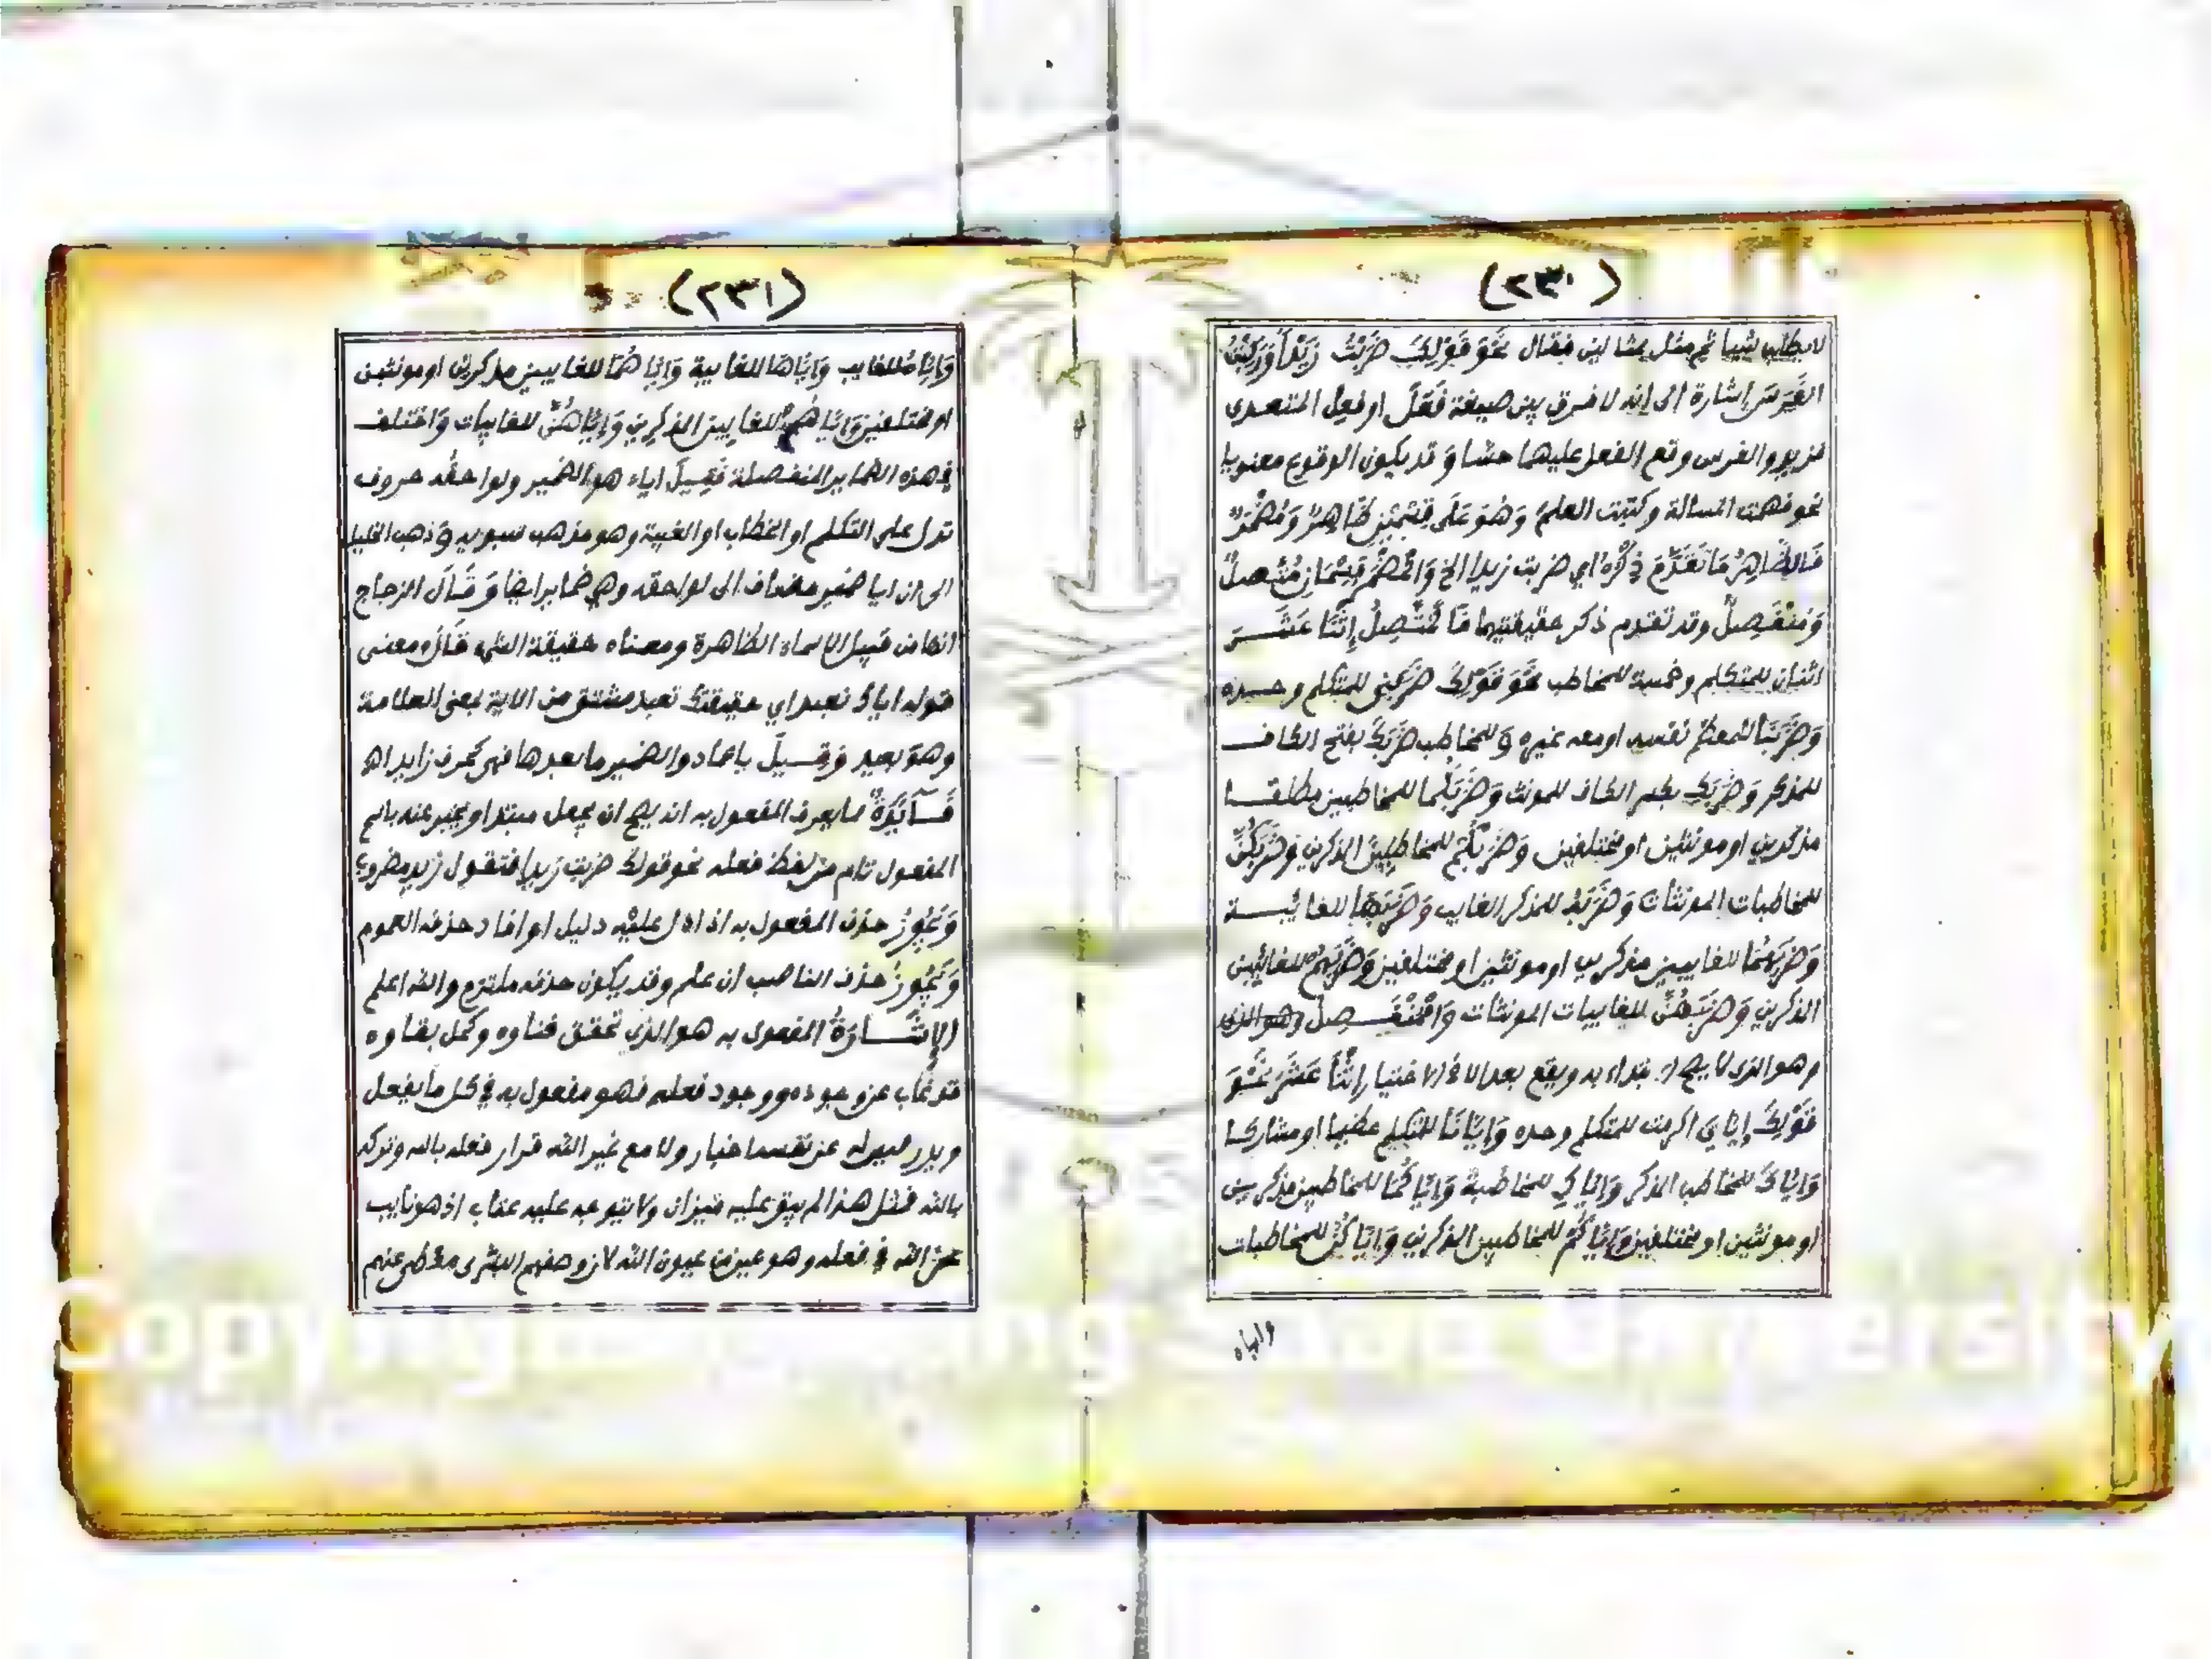 (٢٣٠)
لا يطلب شيا ثم مثل بمثالين فقال نَحْوَ قَوْلِكَ ضَرَبْتُ زَيْدًا وَرَكِبْتُ
الفَرَسَ إشارة الى انه لا فرق بين صيغة فَعَلَ او فعِل المتعدى
فزيد والفرس وقع الفعل عليهما حسّا وقد يكون الوقوع معنويا
نحو فهمت المسالة وكتبت العلم وَهُوَ عَلَى قِسْمَيْنِ ظَاهِرٌ وَمُضْمَرٌ
فَالظَّاهِرُ مَا تَقَدَّمَ ذِكْرُهُ اي ضربت زيدا الخ وَالمُضْمَرُ قِسْمَانِ مُتَّصِلٌ
وَمُنْفَصِلٌ وقد تقدم ذكر حقيقتيهما فَالمُتَّصِلُ إثْنَا عَشَرَ
اثنان للمتكلم وخمسة للمخاطب نَحْوَ قَوْلِكَ ضَرَبَنِي للمتكلم وحده
وَضَرَبَنَا للمعظم نفسه او معه غيره وَللمخاطب ضَرَبَكَ بفتح الكاف
للمذكر وَضَرَبَكِ بكسر الكاف للمونث وَضَرَبَكُمَا للمخاطبين مطلقا
مذكرين او مونثين او مختلفين وَضَرَبَكُمْ للمخاطبين الذكرين وَضَرَبَكُنَّ
للمخاطبات المونثات وَضَرَبَهُ للمذكر الغايب وَضَرَبَهَا للغائبة
وَضَرَبَهُمَا للغايبين مذكرين او مونثين او مختلفين وَضَرَبَهُمْ للغائبين
الذكرين وَضَرَبَهُنَّ للغايبات المونثات وَالمُنْفَصِل وهو الذى
وهو الذى لا يصح الابتداء به ويقع بعد الا في الاختيار إثْنَا عَشَرَ نَحْوَ
قَوْلِكَ إيَّايَ اكرمت للمتكلم وحده وَإيَّانَا للمتكلم عظيما او مشاركا
وَايَّاكَ للمخاطب المذكر وَايَّاكِ للمخاطبة وَايَّاكُمَا للمخاطبين مذكرين
او مونثين او مختلفين وَايَّاكُمْ للمخاطبين الذكرين وَايَّاكُنَّ للمخاطبات
واياه
(٢٣١)
وَايَّاهُ للغايب وَايَّاهَا للغايبة وَايَّاهُمَا للغايبين مذكرين او مونثين
او مختلفين وَايَّاهُمْ للغايبين الذكرين وَايَّاهُنَّ للغايبات وَاختلف
في هذه الضماير المنفصلة فَقِيلَ اياء هو الضمير ولواحقه حروف
تدل على التكلم او الخطاب او الغيبة وهو مذهب سبويه وَذهب الخليل
الى ان ايا ضمير مضاف الى لواحقه وهي ضماير ايضا وَقَالَ الزجاج
انها من قبيل الاسماء الظاهرة ومعناه حقيقة الشي قَالَ ومعنى
قوله اياك نعبد اي حقيقتك نعبد مشتق من الاية بمعنى العلامة
وهو بعيد وَقِيلَ ايا عماد والضمير ما بعدها فهي كحرف زايد اه
فَائِدَةٌ مما يعرف المفعول به انه يصح ان يجعل مبتدا ويخبر عنه باسم
المفعول تام من لفظ فعله نحو قولك ضربت زيدا فتقول زيد مضروب
وَيَجُوزُ حذف المفعول به اذا دل عليه دليل او افاد حذفه العموم
وَيَجُوزُ حذف الناصب ان علم وقد يكون حذفه ملتزم والله اعلم
الإِشَارَةُ المفعول به هو الذى تحقق فناوه وكمل بقاوه
قد غاب عن وجوده ووجود فعله فهو مفعول به في كل ما يفعل
ويدر ليس له عن نفسه اخبار ولا مع غير الله قرار فعله بالله وتركه
بالله فمثل هذا لم يبق عليه ميزان ولا يتوجه عليه عتاب اذ هو نايب
عن الله في فعله وهو عين من عيون الله لان وصفهم البشرى مغطى عنهم
Copyright King Saud University